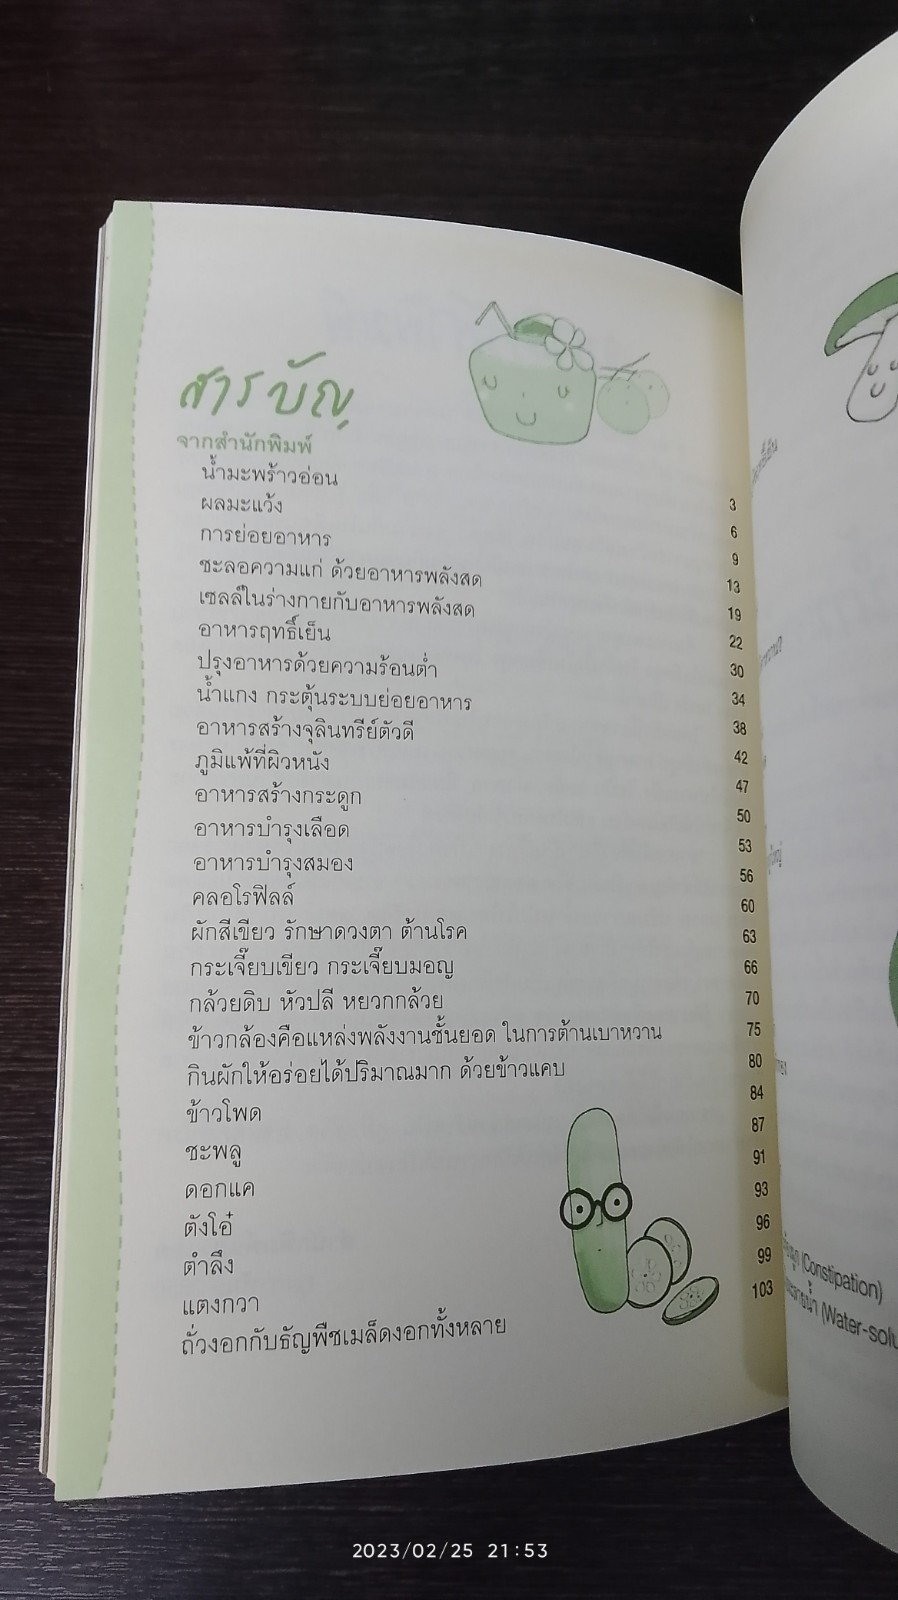 สารบัญ
จากสำนักพิมพ์
น้ำมะพร้าวอ่อน 3
ผลมะแว้ง 6
การย่อยอาหาร 9
ชะลอความแก่ ด้วยอาหารพลังสด 13
เซลล์ในร่างกายกับอาหารพลังสด 19
อาหารฤทธิ์เย็น 22
ปรุงอาหารด้วยความร้อนต่ำ 30
น้ำแกง กระตุ้นระบบย่อยอาหาร 34
อาหารสร้างจุลินทรีย์ตัวดี 38
ภูมิแพ้ที่ผิวหนัง 42
อาหารสร้างกระดูก 47
อาหารบำรุงเลือด 50
อาหารบำรุงสมอง 53
คลอโรฟิลล์ 56
ผักสีเขียว รักษาดวงตา ต้านโรค 60
กระเจี๊ยบเขียว กระเจี๊ยบมอญ 63
กล้วยดิบ หัวปลี หยวกกล้วย 66
ข้าวกล้องคือแหล่งพลังงานชั้นยอด ในการต้านเบาหวาน 70
กินผักให้อร่อยได้ปริมาณมาก ด้วยข้าวแคบ 75
ข้าวโพด 80
ชะพลู 84
ดอกแค 87
ตังโอ๋ 91
ตำลึง 93
แตงกวา 96
ถั่วงอกกับธัญพืชเมล็ดงอกทั้งหลาย 99
103
(Constipation)
(Water-solu
2023/02/25 21:53